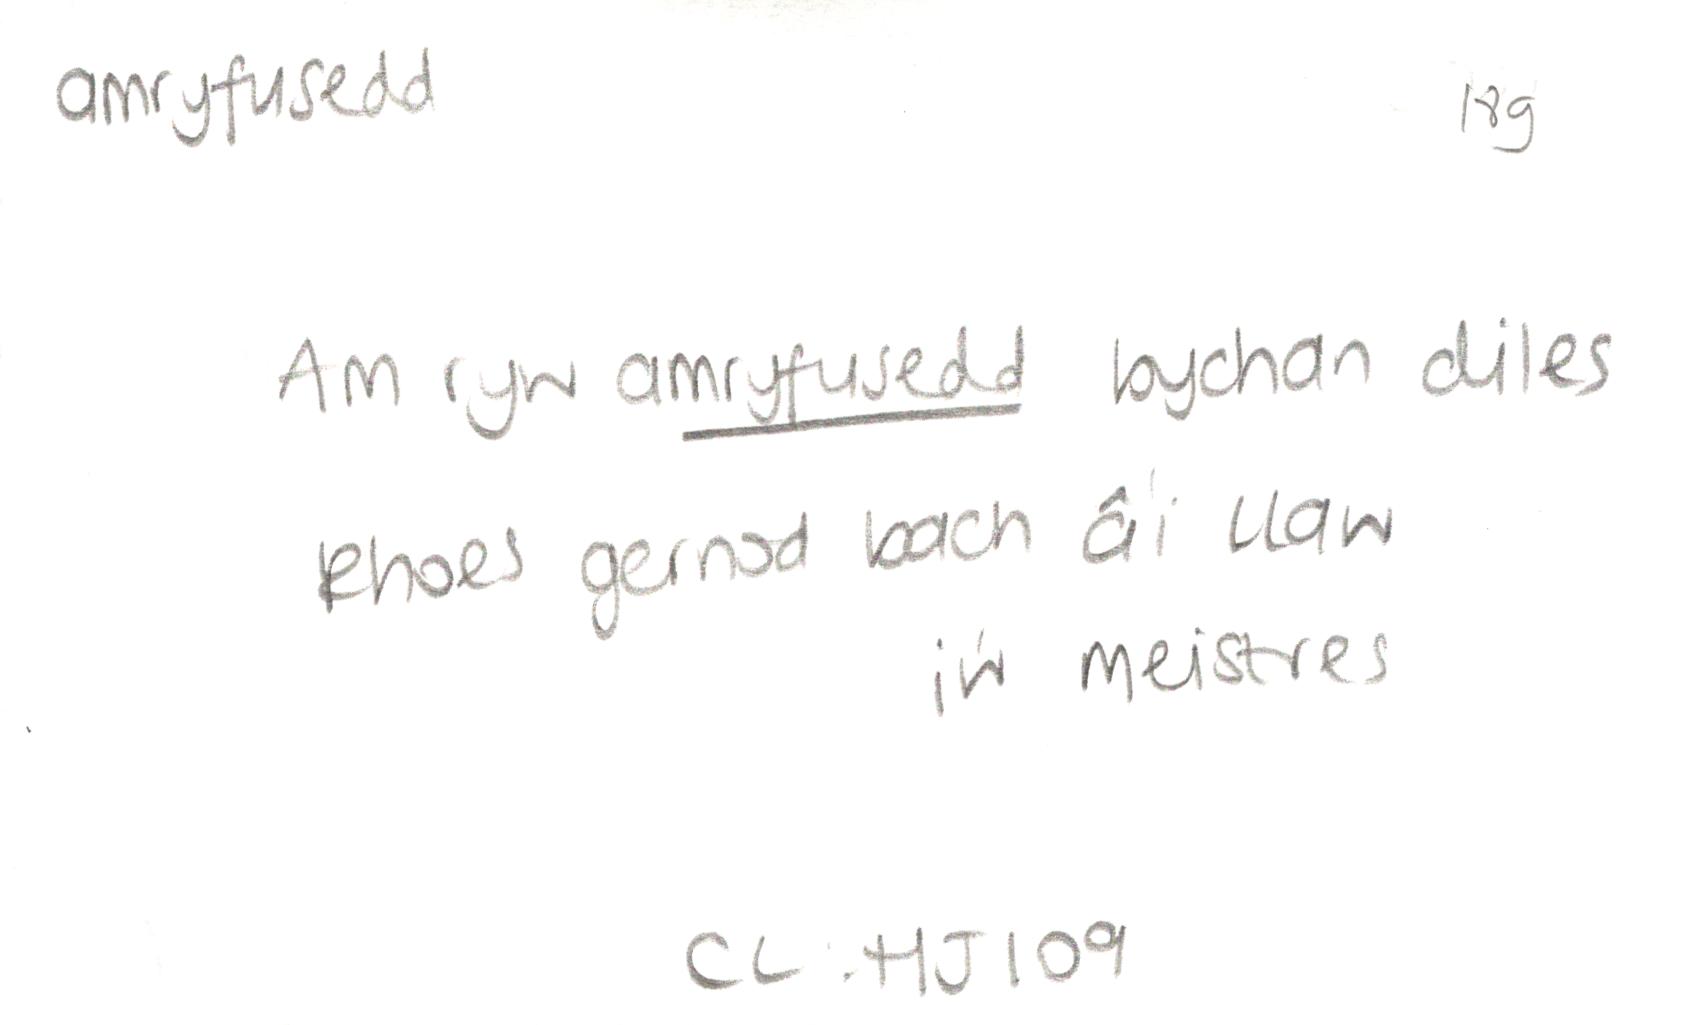 amryfusedd 18g
Am ryw amryfusedd bychan diles
Rhoes gernod bach â'i llaw
i'w meistres
CL:HJ109